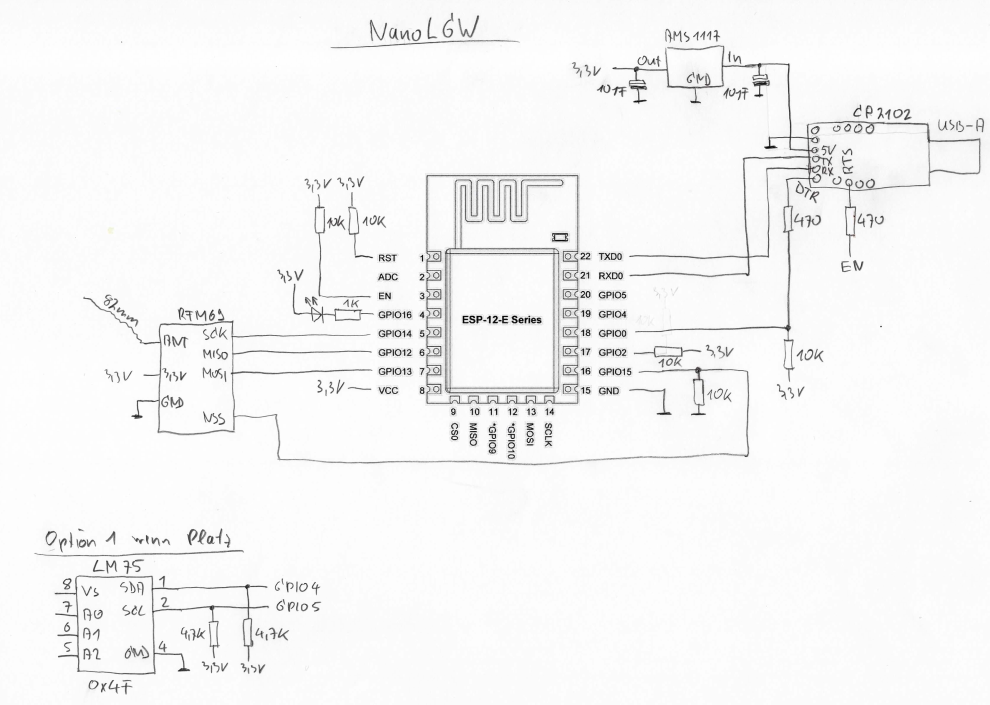 NanoLGW
AMS1117
3,3V Out In
GND
10µF 10µF
CP2102
USB-A
5V
TX
RX
RTS
DTR
470 470
EN
3,3V 3,3V
10K 10K
RST 1
ADC 2
EN 3
GPIO16 4
GPIO14 5
GPIO12 6
GPIO13 7
VCC 8
3,3V
1K
3,3V
ESP-12-E Series
22 TXD0
21 RXD0
20 GPIO5
19 GPIO4
18 GPIO0
17 GPIO2
16 GPIO15
15 GND
10K 3,3V
10K
10K
3,3V
9 10 11 12 13 14
CS0 MISO *GPIO9 *GPIO10 MOSI SCLK
82mm
RFM69
ANT SCK
MISO
3,3V 3,3V MOSI
GND
NSS
Option 1 wenn Platz
LM75
8 VS SDA 1 GPIO4
7 A0 SCL 2 GPIO5
6 A1
5 A2 GND 4
4,7K 4,7K
3,3V 3,3V
0x4F